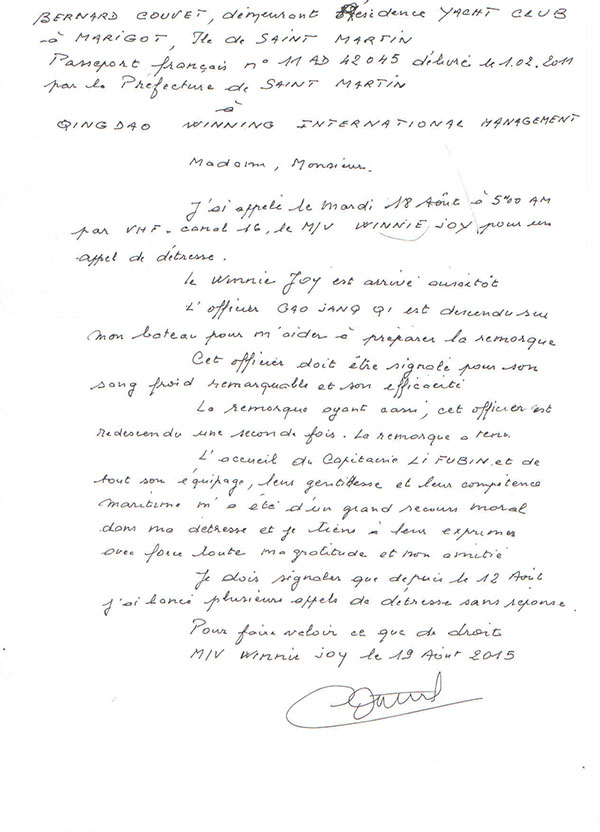 BERNARD COUVET, demeurant Résidence YACHT CLUB
à MARIGOT, Ile de SAINT MARTIN
Passeport français n° 11 AD 42045 délivré le 1.02.2011
par la Préfecture de SAINT MARTIN
à
QINGDAO WINNING INTERNATIONAL MANAGEMENT
Madame, Monsieur.
J'ai appelé le Mardi 18 Août à 5h00 AM
par VHF. canal 16, le M/V WINNIE JOY pour un
appel de détresse.
Le Winnie Joy est arrivé aussitôt
L'officier GAO JANG QI est descendu sur
mon bateau pour m'aider à préparer la remorque
Cet officier doit être signalé pour son
sang froid remarquable et son efficacité
La remorque ayant cassé, cet officier est
redescendu une seconde fois. La remorque a tenu.
L'accueil du Capitaine LI FUBIN et de
tout son équipage, leur gentillesse et leur compétence
maritime m'a été d'un grand secours moral
dans ma détresse et je tiens à leur exprimer
avec force toute ma gratitude et mon amitié
Je dois signaler que depuis le 12 Août
j'ai lancé plusieurs appels de détresse sans réponse.
Pour faire valoir ce que de droit
M/V WINNIE JOY le 19 Août 2015